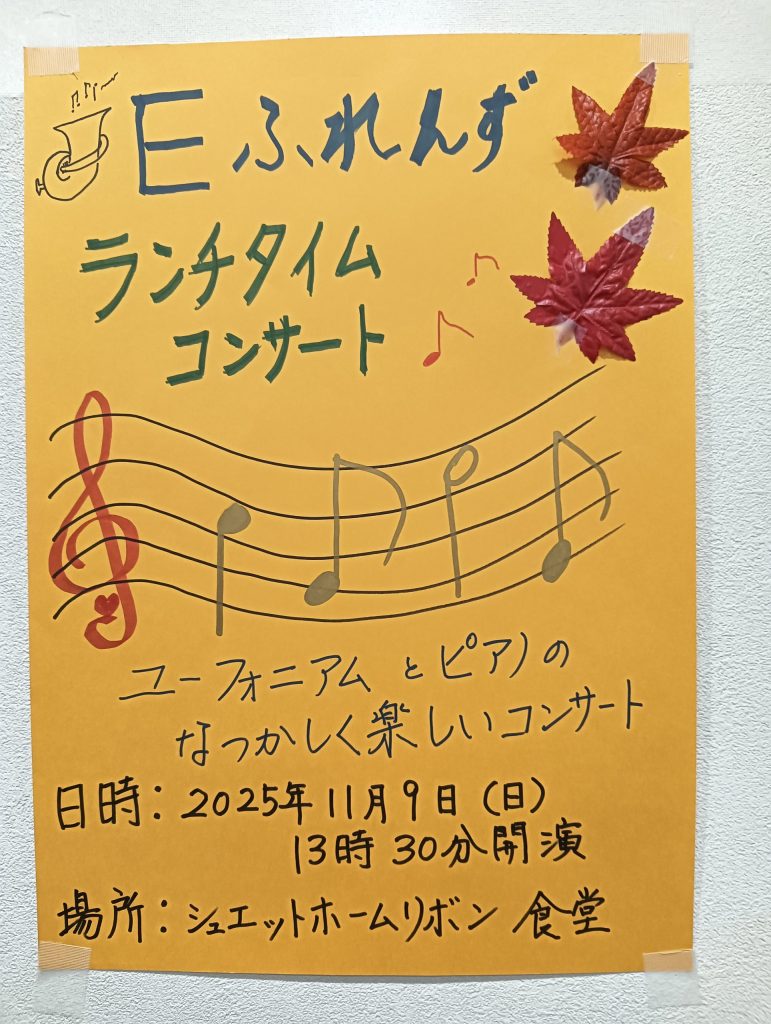 Eふれんず
ランチタイム
コンサート
ユーフォニアムとピアノの
なつかしく楽しいコンサート
日時：2025年11月9日（日）
13時30分開演
場所：シュエットホームリボン 食堂